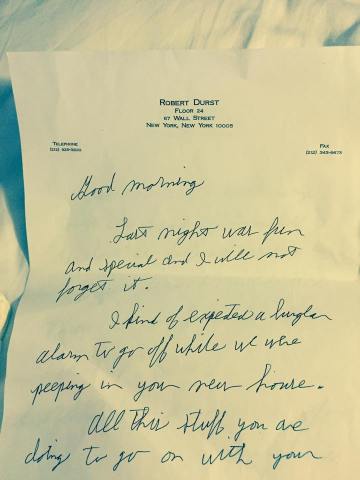 ROBERT DURST
FLOOR 24
67 WALL STREET
NEW YORK, NEW YORK 10005
TELEPHONE
FAX
Good morning
Last night was fun
and special and I will not
forget it.
I kind of expected a burglar
alarm to go off while we were
peeping in your new house.
All this stuff you are
doing to go on with your